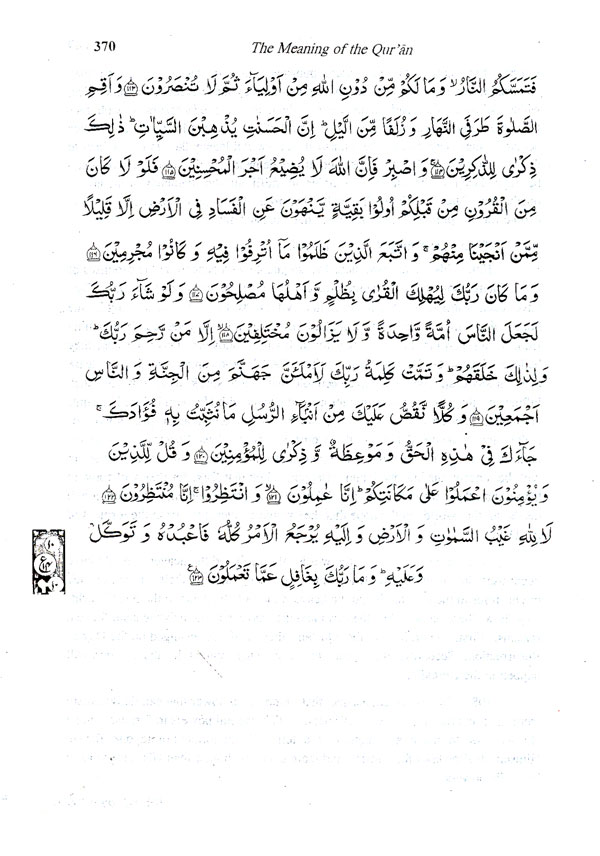 370 The Meaning of the Qur'ân
فَتَمَسَّكُمُ النَّارُ ۙ وَ مَا لَكُمْ مِّنْ دُوْنِ اللّٰهِ مِنْ اَوْلِيَآءَ ثُمَّ لَا تُنْصَرُوْنَ ﴿۱۱۳﴾ وَ اَقِمِ
الصَّلٰوةَ طَرَفَيِ النَّهَارِ وَ زُلَفًا مِّنَ الَّيْلِ ؕ اِنَّ الْحَسَنٰتِ يُذْهِبْنَ السَّيِّاٰتِ ؕ ذٰلِكَ
ذِكْرٰى لِلذّٰكِرِيْنَ ﴿۱۱۴﴾ وَ اصْبِرْ فَاِنَّ اللّٰهَ لَا يُضِيْعُ اَجْرَ الْمُحْسِنِيْنَ ﴿۱۱۵﴾ فَلَوْ لَا كَانَ
مِنَ الْقُرُوْنِ مِنْ قَبْلِكُمْ اُولُوْا بَقِيَّةٍ يَّنْهَوْنَ عَنِ الْفَسَادِ فِى الْاَرْضِ اِلَّا قَلِيْلًا
مِّمَّنْ اَنْجَيْنَا مِنْهُمْ ۚ وَ اتَّبَعَ الَّذِيْنَ ظَلَمُوْا مَاۤ اُتْرِفُوْا فِيْهِ وَ كَانُوْا مُجْرِمِيْنَ ﴿۱۱۶﴾
وَ مَا كَانَ رَبُّكَ لِيُهْلِكَ الْقُرٰى بِظُلْمٍ وَّ اَهْلُهَا مُصْلِحُوْنَ ﴿۱۱۷﴾ وَ لَوْ شَآءَ رَبُّكَ
لَجَعَلَ النَّاسَ اُمَّةً وَّاحِدَةً وَّ لَا يَزَالُوْنَ مُخْتَلِفِيْنَ ﴿۱۱۸﴾ اِلَّا مَنْ رَّحِمَ رَبُّكَ ؕ
وَ لِذٰلِكَ خَلَقَهُمْ ؕ وَ تَمَّتْ كَلِمَةُ رَبِّكَ لَاَمْلَئَنَّ جَهَنَّمَ مِنَ الْجِنَّةِ وَ النَّاسِ
اَجْمَعِيْنَ ﴿۱۱۹﴾ وَ كُلًّا نَّقُصُّ عَلَيْكَ مِنْ اَنْۢبَآءِ الرُّسُلِ مَا نُثَبِّتُ بِهٖ فُؤَادَكَ ۚ
جَآءَكَ فِيْ هٰذِهِ الْحَقُّ وَ مَوْعِظَةٌ وَّ ذِكْرٰى لِلْمُؤْمِنِيْنَ ﴿۱۲۰﴾ وَ قُلْ لِّلَّذِيْنَ
وَ يُؤْمِنُوْنَ اعْمَلُوْا عَلٰى مَكَانَتِكُمْ ؕ اِنَّا عٰمِلُوْنَ ﴿۱۲۱﴾ وَ انْتَظِرُوْا ۚ اِنَّا مُنْتَظِرُوْنَ ﴿۱۲۲﴾
لَا لِلّٰهِ غَيْبُ السَّمٰوٰتِ وَ الْاَرْضِ وَ اِلَيْهِ يُرْجَعُ الْاَمْرُ كُلُّهٗ فَاعْبُدْهُ وَ تَوَكَّلْ
وَعَلَيْهِ ؕ وَ مَا رَبُّكَ بِغَافِلٍ عَمَّا تَعْمَلُوْنَ ﴿۱۲۳﴾